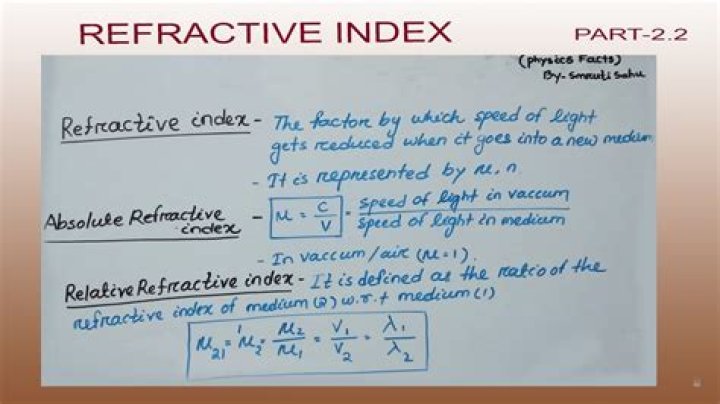 REFRACTIVE INDEX PART-2.2
(Physics Facts)
By- Smruti Sahu
Refractive index - The factor by which speed of light
gets reduced when it goes into a new medium
- It is represented by μ, n.
Absolute Refractive index - μ = C/V = speed of light in vaccum / speed of light in medium
- In vaccum/air (μ=1).
Relative Refractive index - It is defined as the ratio of the
refractive index of medium (2) w.r.t medium (1)
μ₂₁ = ¹μ₂ = μ₂/μ₁ = V₁/V₂ = λ₁/λ₂